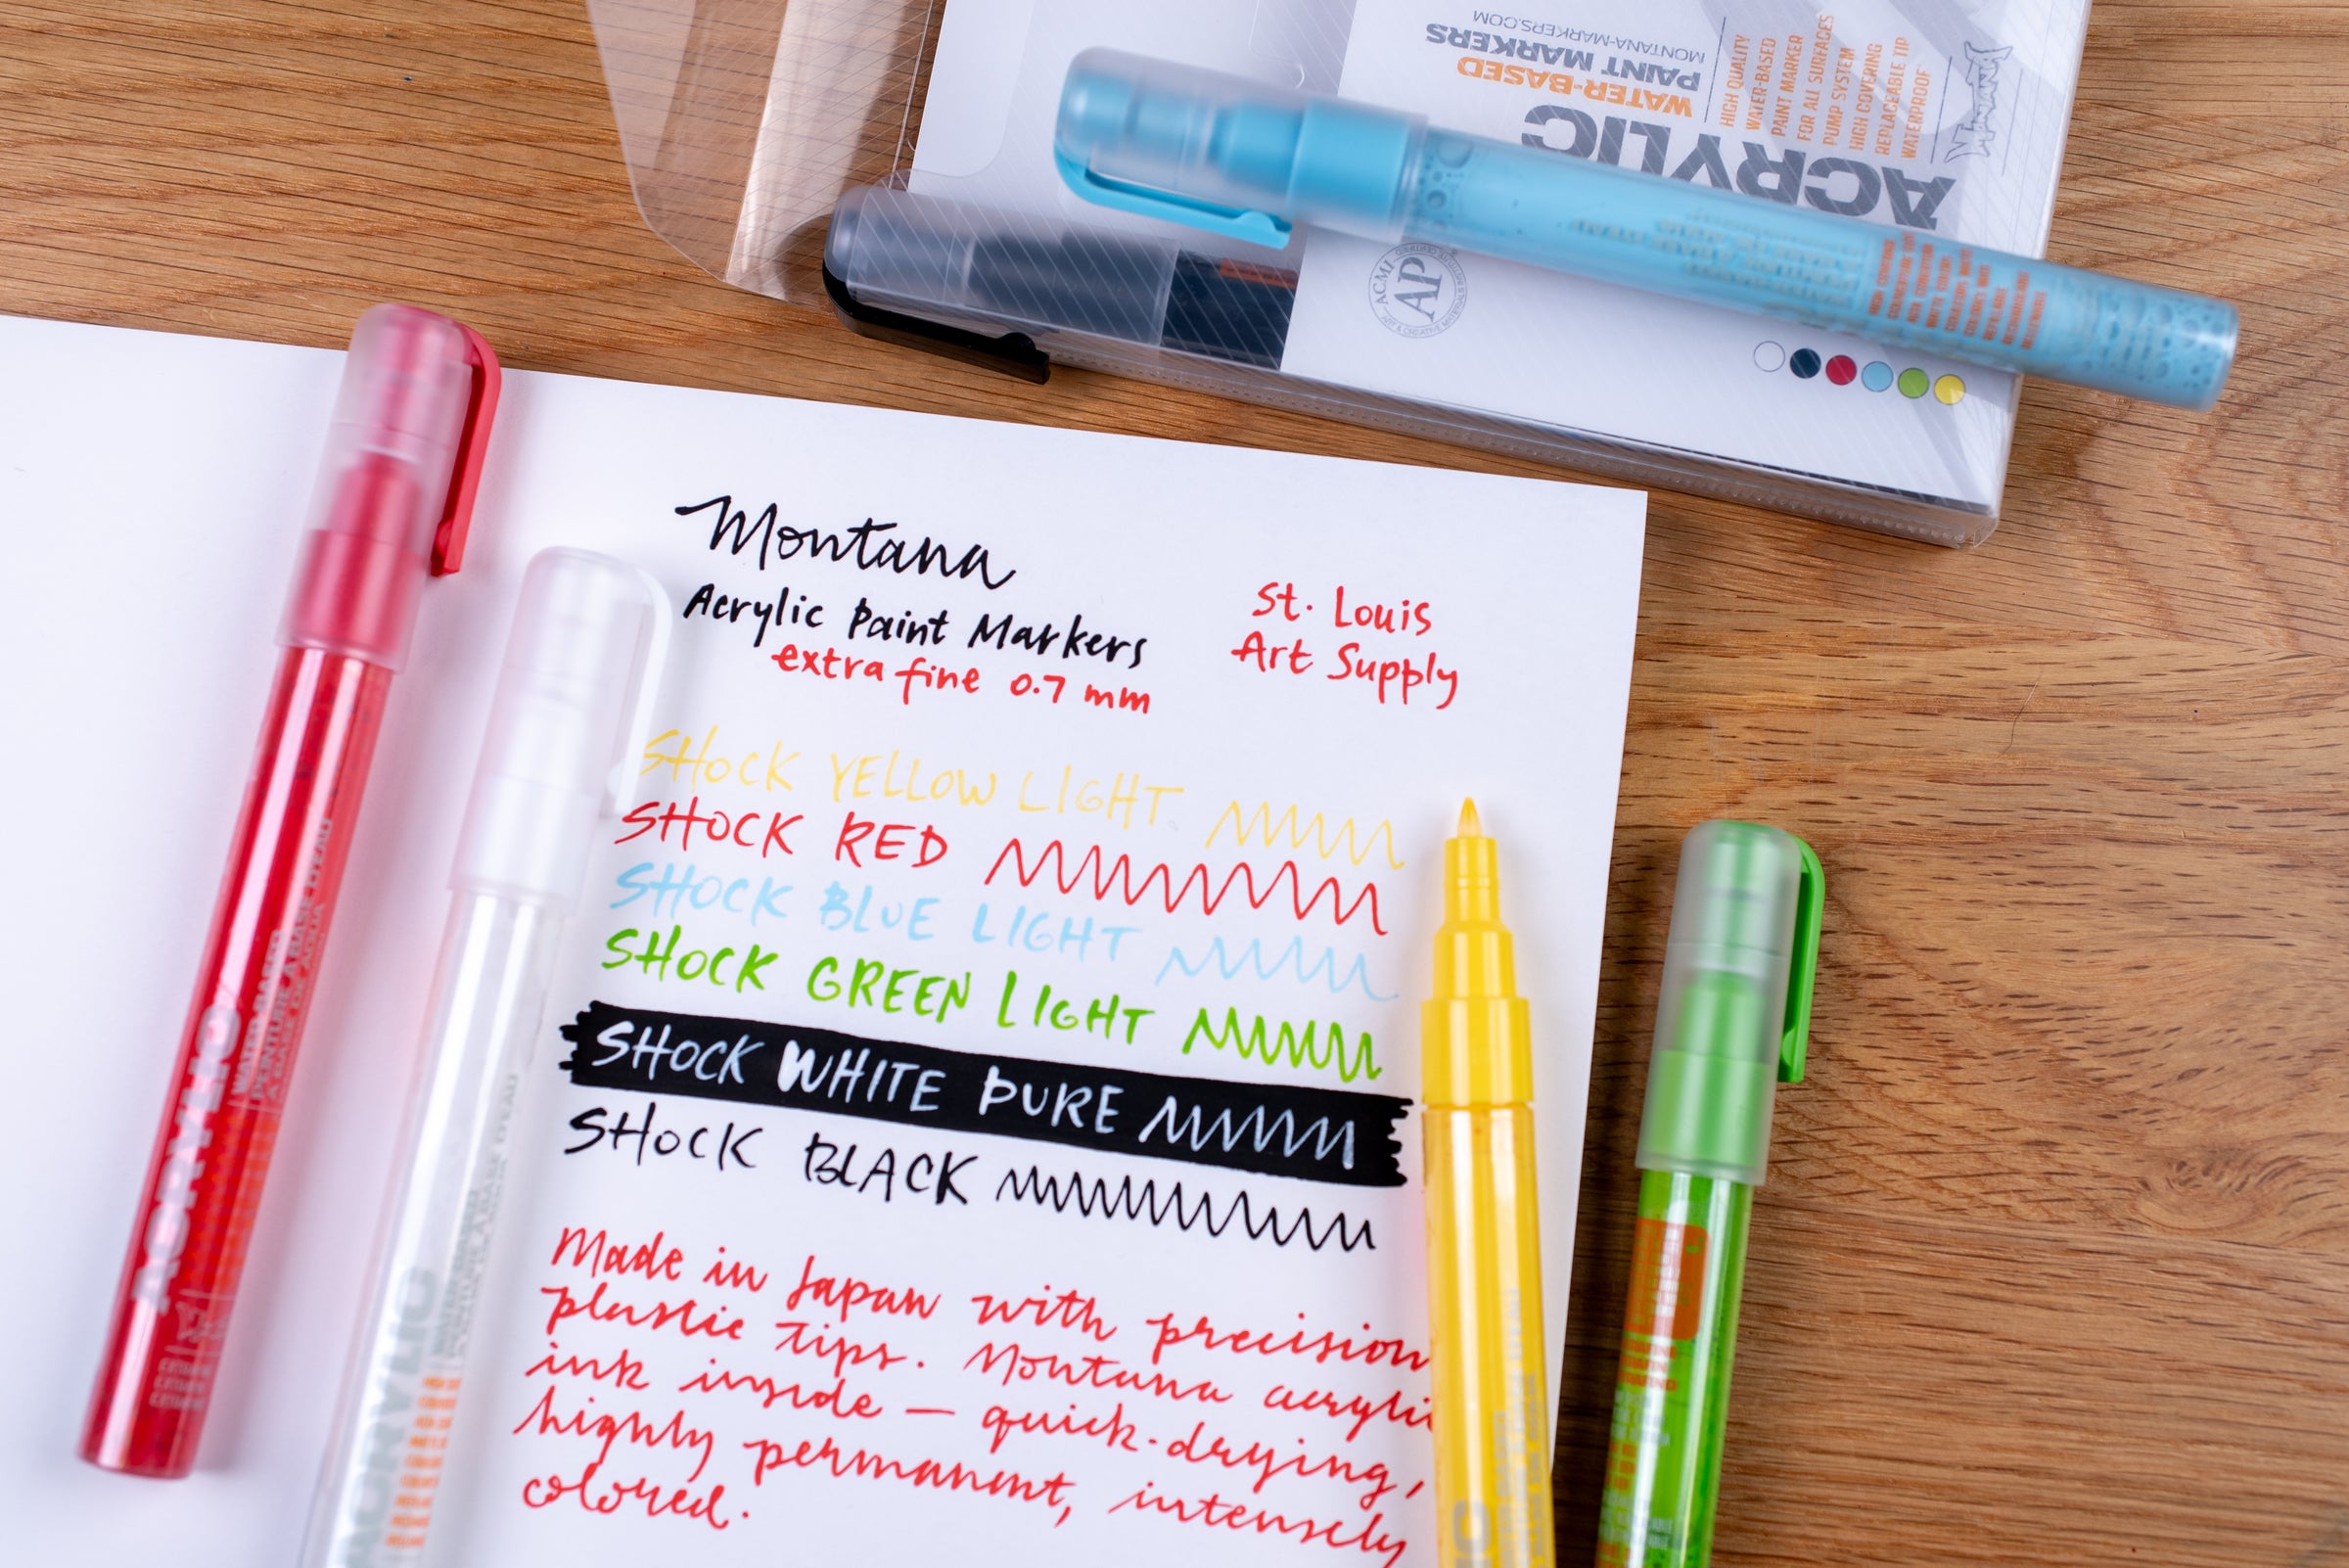 MONTANA-MARKERS.COM
PAINT MARKERS
WATER-BASED
ACRYLIC
HIGH QUALITY
WATER-BASED
PAINT MARKER
FOR ALL SURFACES
PUMP SYSTEM
HIGH COVERING
REPLACEABLE TIP
WATERPROOF
MONTANA
ACMI
AP
Montana
Acrylic Paint Markers
extra fine 0.7 mm
St. Louis
Art Supply
SHOCK YELLOW LIGHT
SHOCK RED
SHOCK BLUE LIGHT
SHOCK GREEN LIGHT
SHOCK WHITE PURE
SHOCK BLACK
Made in Japan with precision
plastic tips. Montana acrylic
ink inside — quick-drying,
highly permanent, intensely
colored.
ACRYLIC
WATER-BASED
PEINTURE À BASE D'EAU
ACRYLIC